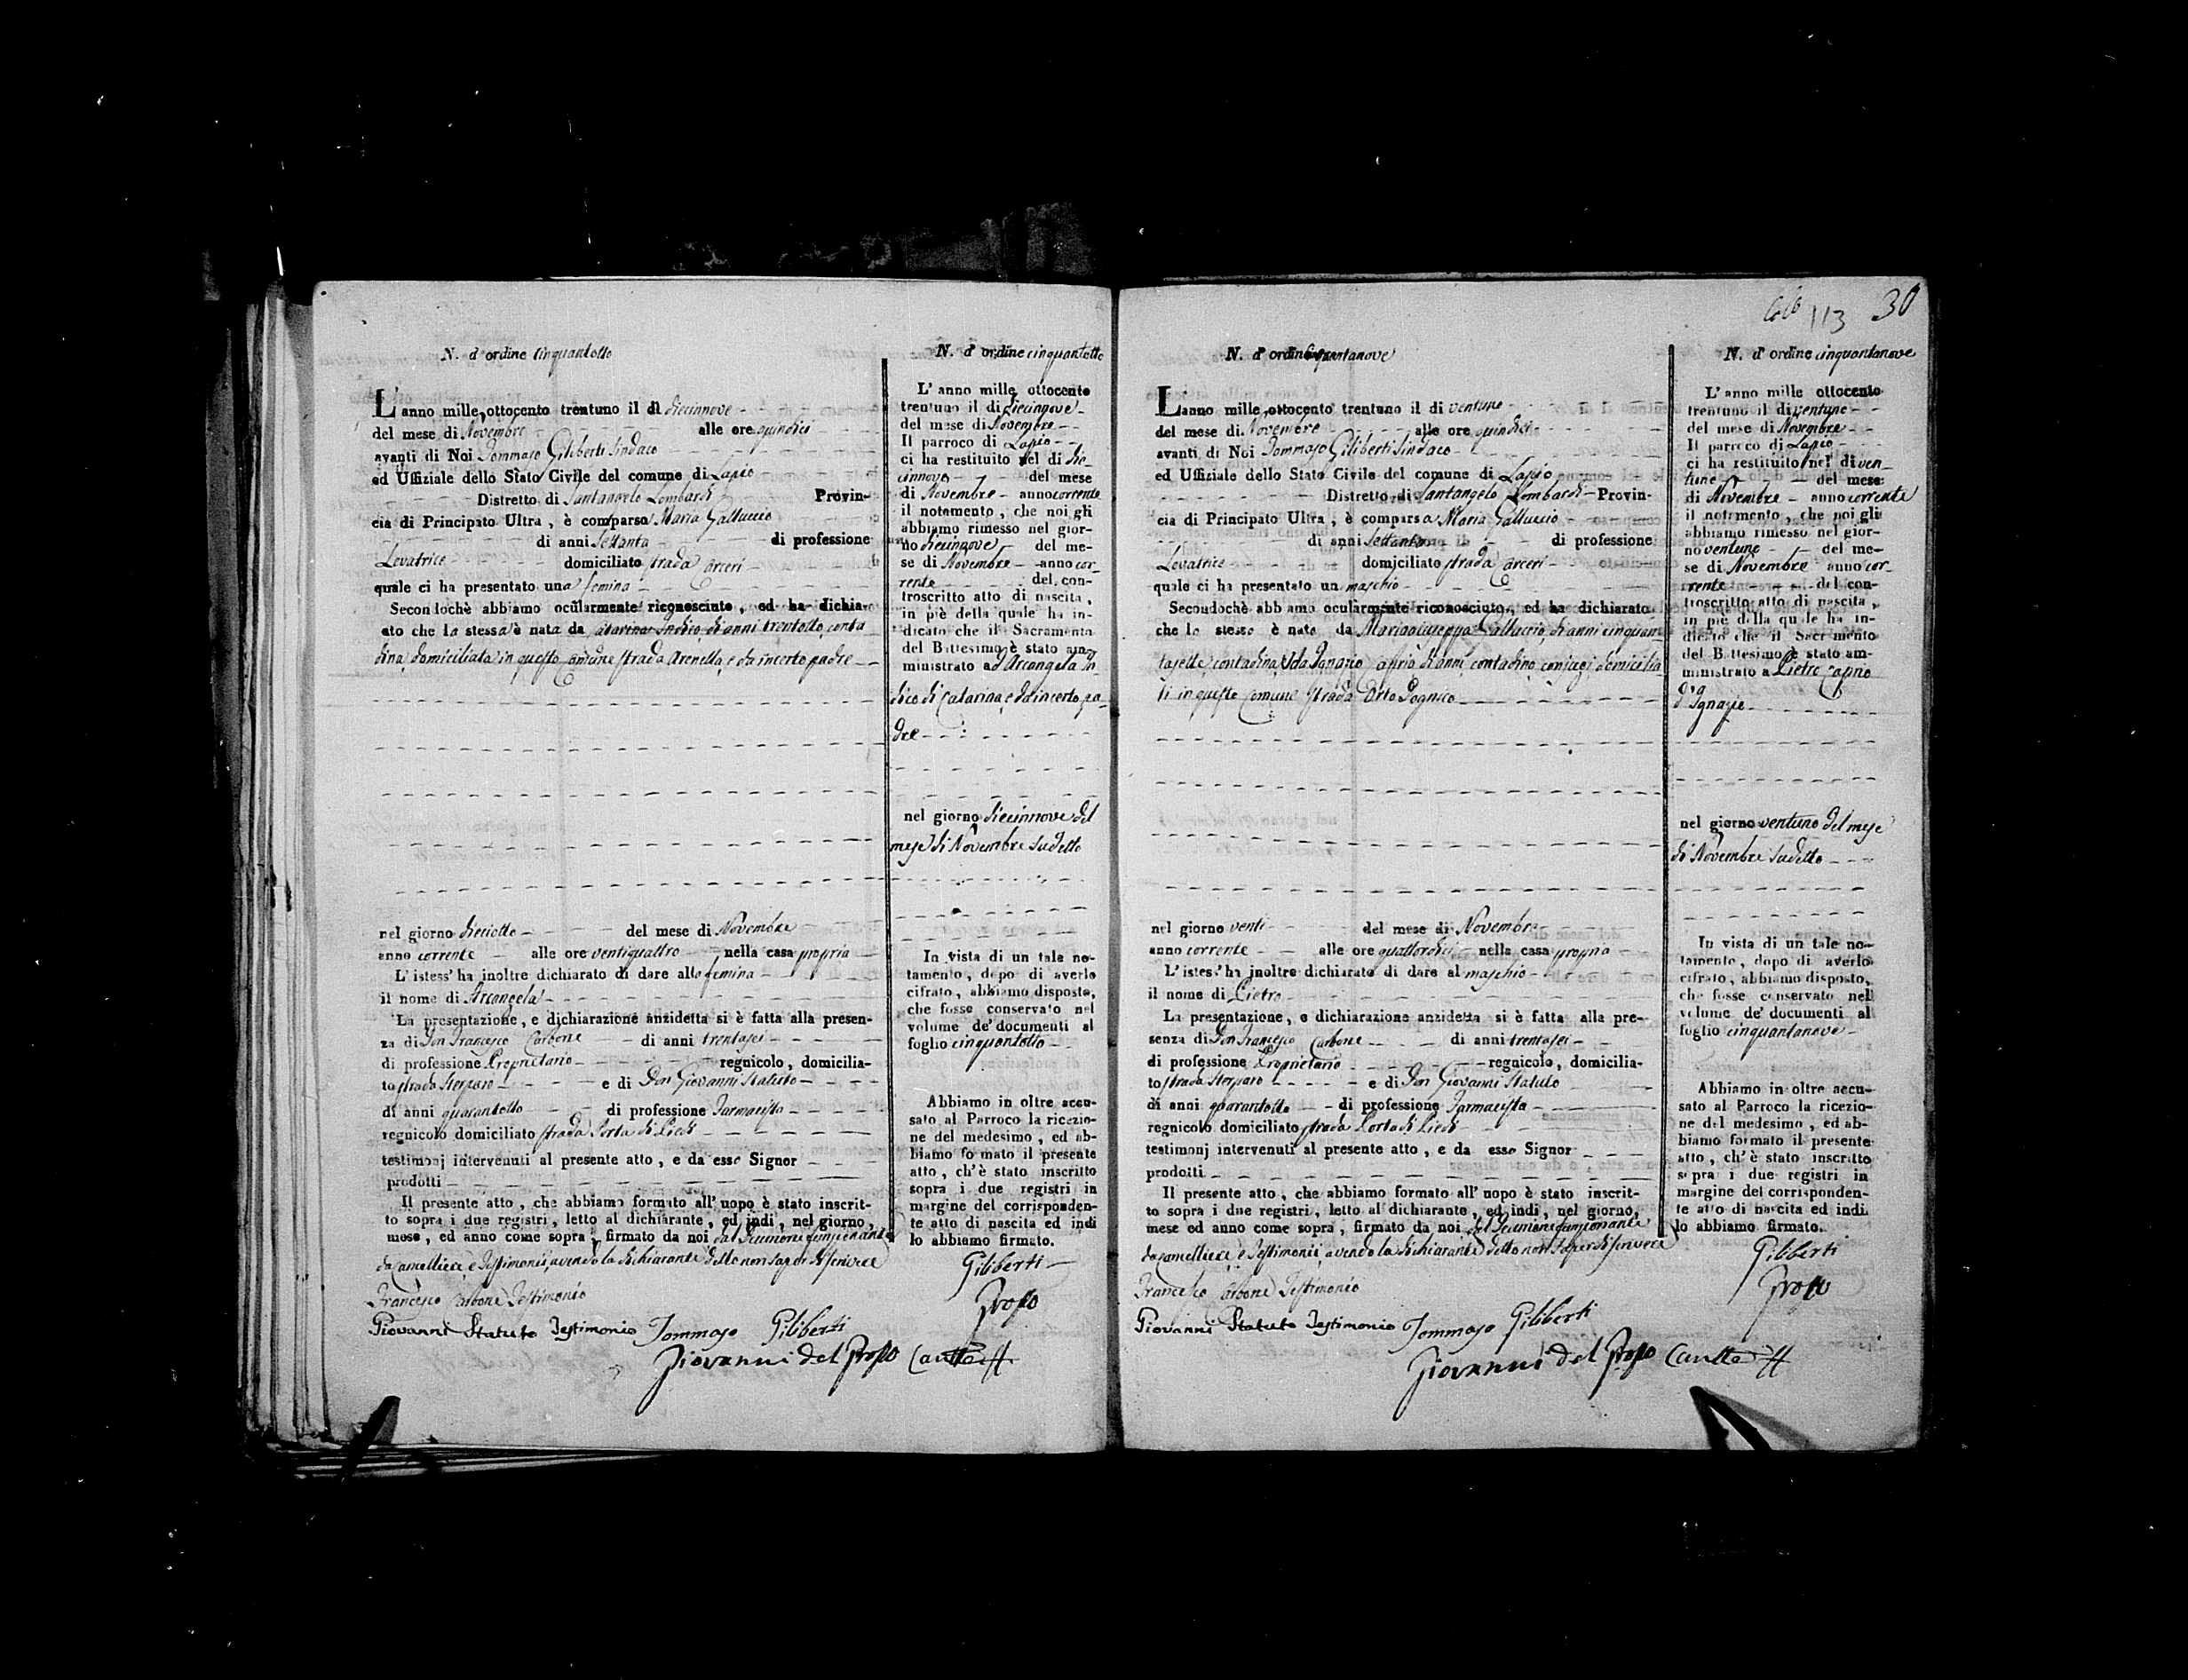 N. d' ordine Cinquantotto
L'anno mille ottocento trentuno il di diecinnove
del mese di Novembre alle ore quindici
avanti di Noi Tommaso Giliberti Sindaco
ed Uffiziale dello Stato Civile del comune di Lapio
Distretto di Santangelo Lombardi Provin-
cia di Principato Ultra, è comparsa Maria Galluccio
di anni Settanta di professione
Levatrice domiciliato strada Carceri
quale ci ha presentato una femina
Secondochè abbiamo ocularmente riconosciuto, ed ha dichia-
ato che la stessa è nata da Catarina Indico di anni trentotto, conta
dina, domiciliata in questo Comune strada Arenella, e da incerto padre
nel giorno dieciotto del mese di Novembre
anno corrente alle ore ventiquattro nella casa propria
L' istess' ha inoltre dichiarato di dare alla femina
il nome di Arcangela
La presentazione, e dichiarazione anzidetta si è fatta alla presen-
za di Don Francesco Carbone di anni trentasei
di professione Proprietario regnicolo, domicilia-
to strada Sterparo e di Don Giovanni Statuto
di anni quarantotto di professione Farmacista
regnicolo domiciliato strada Porta di Piedi
testimonj intervenuti al presente atto, e da esso Signor
prodotti
Il presente atto, che abbiamo formato all' uopo è stato inscrit-
to sopra i due registri, letto al dichiarante, ed indi, nel giorno,
mese, ed anno come sopra, firmato da noi dal Decurione funzionante
da Cancelliere, e Testimonii, avendo la dichiarante detto non saper di scrivere
Francesco Carbone Testimonio
Giovanni Statuto Testimonio Tommaso Giliberti
Giovanni del Grosso
N. d' ordine cinquantotto
L' anno mille ottocento
trentuno il di diecinnove
del mese di Novembre
Il parroco di Lapio
ci ha restituito nel di die-
cinnove del mese
di Novembre anno corrente
il notamento, che noi gli
abbiamo rimesso nel gior-
no diecinnove del me-
se di Novembre anno cor-
rente del con-
troscritto atto di nascita,
in piè della quale ha in-
dicato che il Sacramento
del Battesimo è stato am-
ministrato ad Arcangela In
dico di Catarina, e da incerto pa-
dre
nel giorno diecinnove del
mese di Novembre sudetto
In vista di un tale no-
tamento, dopo di averlo
cifrato, abbiamo disposto,
che fosse conservato nel
volume de' documenti al
foglio cinquantotto
Abbiamo in oltre accu-
sato al Parroco la ricezio-
ne del medesimo, ed ab-
biamo formato il presente
atto, ch'è stato inscritto
sopra i due registri in
margine del corrisponden-
te atto di nascita ed indi
lo abbiamo firmato.
Giliberti
Grosso
113 30
N. d' ordine Cinquantanove
L'anno mille ottocento trentuno il di ventuno
del mese di Novembre alle ore quindici
avanti di Noi Tommaso Giliberti Sindaco
ed Uffiziale dello Stato Civile del comune di Lapio
Distretto di Santangelo Lombardi Provin-
cia di Principato Ultra, è comparsa Maria Galluccio
di anni Settanta di professione
Levatrice domiciliato strada Carceri
quale ci ha presentato un maschio
Secondochè abbiamo ocularmente riconosciuto, ed ha dichiarato
che lo stesso è nato da Mariagiuseppa Galluccio, di anni cinquan-
tasette, contadina, e da Ignazio Caprio di anni, contadino, conjugi, domicilia
ti in questo Comune strada Orto
nel giorno venti del mese di Novembre
anno corrente alle ore quattordici nella casa propria
L' istess' ha inoltre dichiarato di dare al maschio
il nome di Pietro
La presentazione, e dichiarazione anzidetta si è fatta alla pre-
senza di Don Francesco Carbone di anni trentasei
di professione Proprietario regnicolo, domicilia-
to strada Sterparo e di Don Giovanni Statuto
di anni quarantotto di professione Farmacista
regnicolo domiciliato strada Porta di Piedi
testimonj intervenuti al presente atto, e da esso Signor
prodotti
Il presente atto, che abbiamo formato all' uopo è stato inscrit-
to sopra i due registri, letto al dichiarante, ed indi, nel giorno,
mese ed anno come sopra, firmato da noi dal Decurione funzionante
da Cancelliere, e Testimonii, avendo la dichiarante detto non saper di scrivere
Francesco Carbone Testimonio
Giovanni Statuto Testimonio Tommaso Giliberti
Giovanni del Grosso
N. d' ordine cinquantanove
L' anno mille ottocento
trentuno il di ventuno
del mese di Novembre
Il parroco di Lapio
ci ha restituito nel di ven-
tuno del mese
di Novembre anno corrente
il notamento, che noi gli
abbiamo rimesso nel gior-
no ventuno del me-
se di Novembre anno cor-
rente del con-
troscritto atto di nascita,
in piè della quale ha in-
dicato che il Sacramento
del Battesimo è stato am-
ministrato a Pietro Caprio
d'Ignazio
nel giorno ventuno del mese
di Novembre sudetto
In vista di un tale no-
tamento, dopo di averlo
cifrato, abbiamo disposto,
che fosse conservato nel
volume de' documenti al
foglio cinquantanove
Abbiamo in oltre accu-
sato al Parroco la ricezio-
ne del medesimo, ed ab-
biamo formato il presente
atto, ch'è stato inscritto
sopra i due registri in
margine del corrisponden-
te atto di nascita ed indi
lo abbiamo firmato.
Giliberti
Grosso